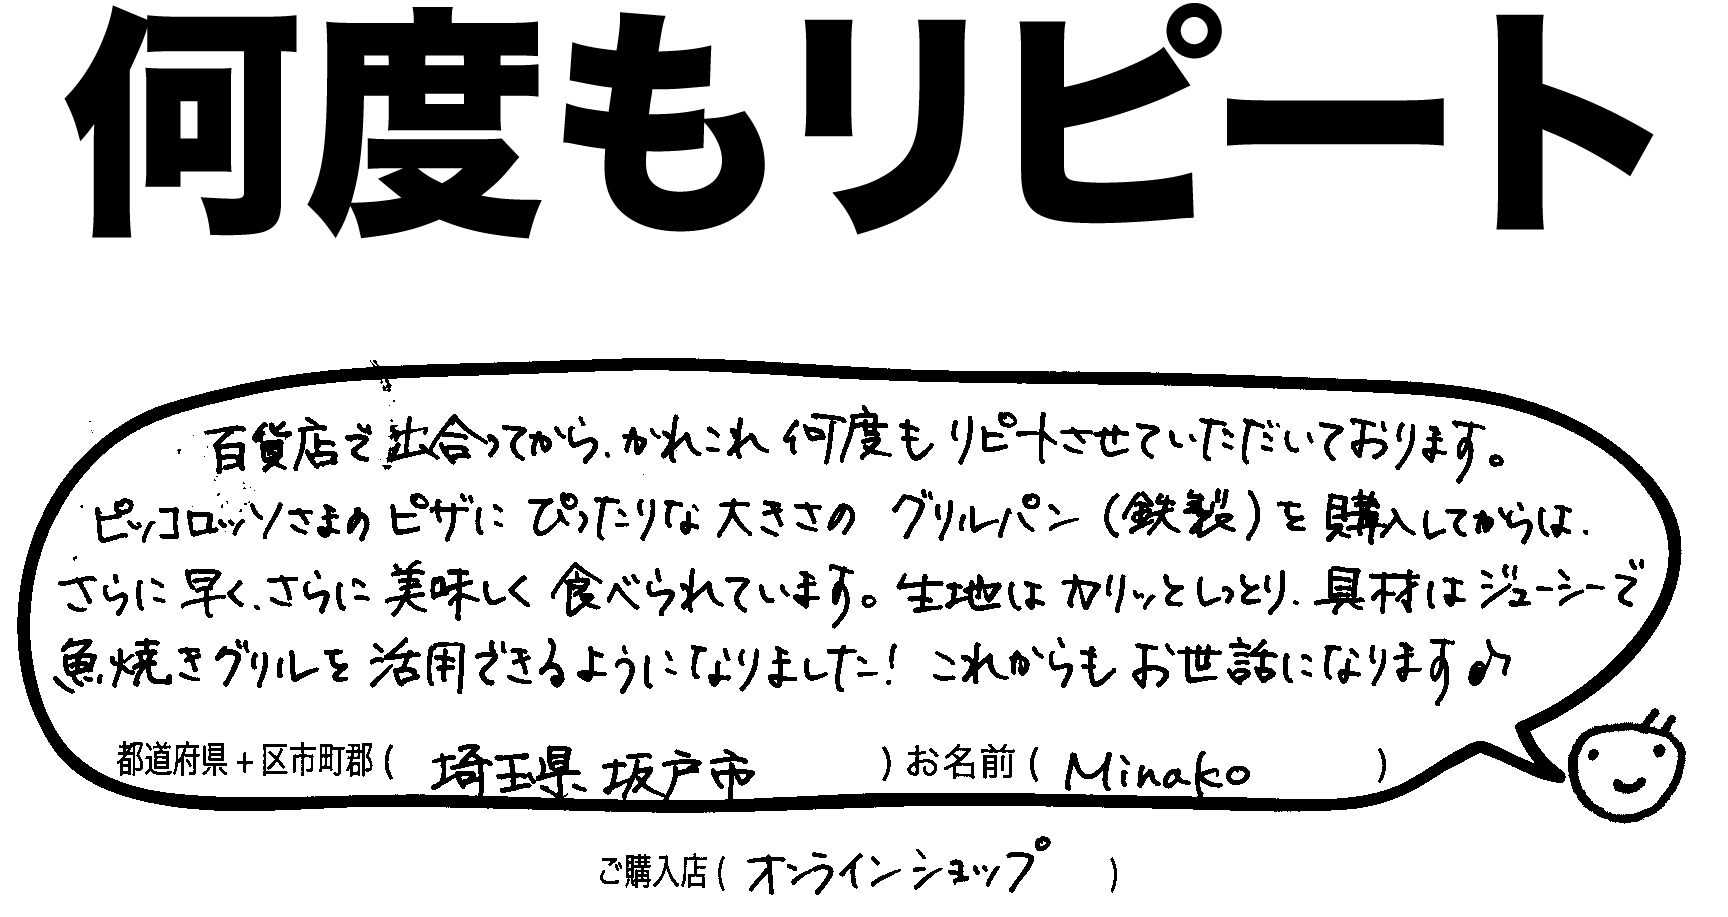 何度もリピート
百貨店で出合ってから、かれこれ何度もリピートさせていただいております。
ピッコロッソさまのピザにぴったりな大きさのグリルパン(鉄製)を購入してからは、
さらに早く、さらに美味しく食べられています。生地はカリッとしっとり、具材はジューシーで
魚焼きグリルを活用できるようになりました！これからもお世話になります♪
都道府県+区市町郡(埼玉県坂戸市)お名前(Minako)
ご購入店(オンラインショップ)